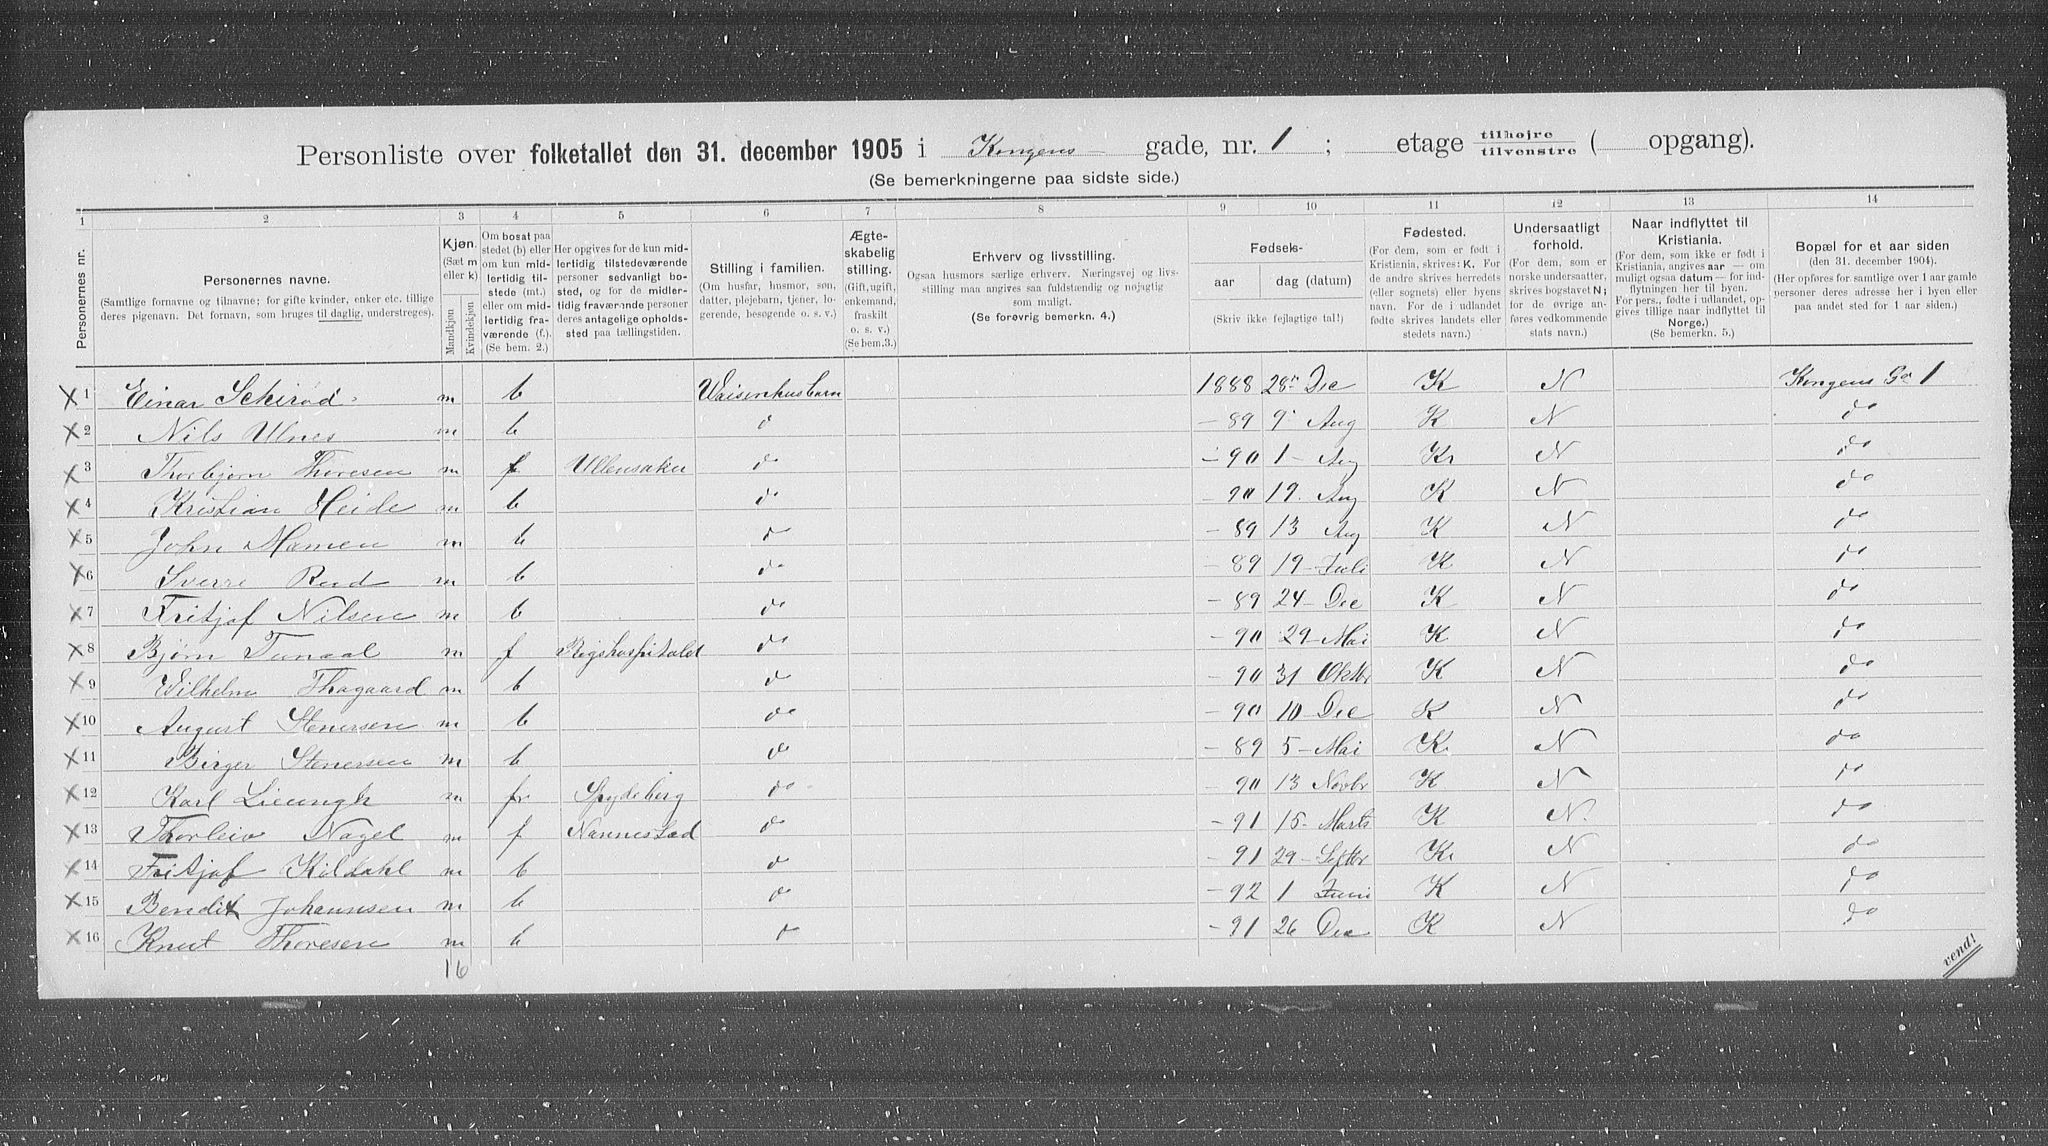 Personliste over folketallet den 31. december 1905 i Kongens gade, nr. 1 ; etage tilhøjre / tilvenstre ( opgang).
(Se bemerkningerne paa sidste side.)
1 2 3 4 5 6 7 8 9 10 11 12 13 14
Personernes nr.
Personernes navne.
(Samtlige fornavne og tilnavne; for gifte kvinder, enker etc. tillige
deres pigenavn. Det fornavn, som bruges til daglig, understreges).
Kjøn.
(Sæt m
eller k)
Mandkjøn
Kvindekjøn
Om bosat paa
stedet (b) eller
om kun mid-
lertidig til-
stede (mt.)
eller om mid-
lertidig fra-
værende (f.).
(Se bem. 2.)
Her opgives for de kun mid-
lertidig tilstedeværende
personer sedvanlig bo-
sted, og for de midler-
tidig fraværende personer
deres antagelige opholds-
sted paa tællingstiden.
Stilling i familien.
(Om husfar, husmor, søn,
datter, plejebarn, tjener, lo-
gerende, besøgende o. s. v.)
Ægte-
skabelig
stilling.
(Gift, ugift,
enkemand,
fraskilt
o. s. v.)
(Se bem.3.)
Erhverv og livsstilling.
Ogsaa husmors særlige erhverv. Næringsvej og livs-
stilling maa angives saa fuldstændig og nøjagtig
som muligt.
(Se forøvrig bemerkn. 4.)
Fødsels-
aar dag (datum)
(Skriv ikke fejlagtige tal!)
Fødested.
(For dem, som er født i
Kristiania, skrives: K. For
de andre skrives herredets
(eller sognets) eller byens
navn. For de i udlandet
fødte skrives landets eller
stedets navn.)
Undersaatligt
forhold.
(For dem, som er
norske undersaatter,
skrives bogstavet N;
for de øvrige an-
føres vedkommende
stats navn.)
Naar indflyttet til
Kristiania.
(For dem, som ikke er født i
Kristiania, angives aar — om
muligt ogsaa datum — for ind-
flytningen her til byen.
For pers., fødte i udlandet, op-
gives tillige naar indflyttet til
Norge.)
(Se bemerkn. 5.)
Bopæl for et aar siden
(den 31. december 1904).
(Her opføres for samtlige over 1 aar gamle
personer deres adresse her i byen eller
paa andet sted for 1 aar siden.)
X 1 Einar Schirød m b Waisenhusbarn 1888 28 Dec K N Kongens Ga 1
X 2 Nils Ulnes m b do — 89 9 Aug K N do
X 3 Thorbjørn Thoresen m f Ullensaker do — 90 1 — Aug Kr N do
X 4 Kristian Heide m b do — 90 19. Aug K N do
X 5 John Mamen m b do — 89 13 Aug K N do
X 6 Sverre Rud m b do — 89 19 — Juli K N do
X 7 Fritjof Nilsen m b do — 89 24 — Dec K N do
X 8 Bjørn Tunaal m f Rigshospitalet do — 90 29 — Mai K N do
X 9 Wilhelm Thagaard m b do — 90 31 Oktbr K N do
X 10 August Stenersen m b do — 90 10 — Dec K N do
X 11 Birger Stenersen m b do — 89 5 — Mai K. N do
X 12 Karl Lieungh m fr Spydeberg do — 90 13 Novbr K N do
X 13 Thorleiv Nagel m f Nannestad do — 91 15 — Marts K N. do
X 14 Fritjof Kildahl m b do — 91 29 — Septbr K. N do
X 15 Bendix Johannsen m b do — 92 1 Juni K N do
X 16 Knut Thoresen m b do — 91 26 Dec K N do
16
vend!